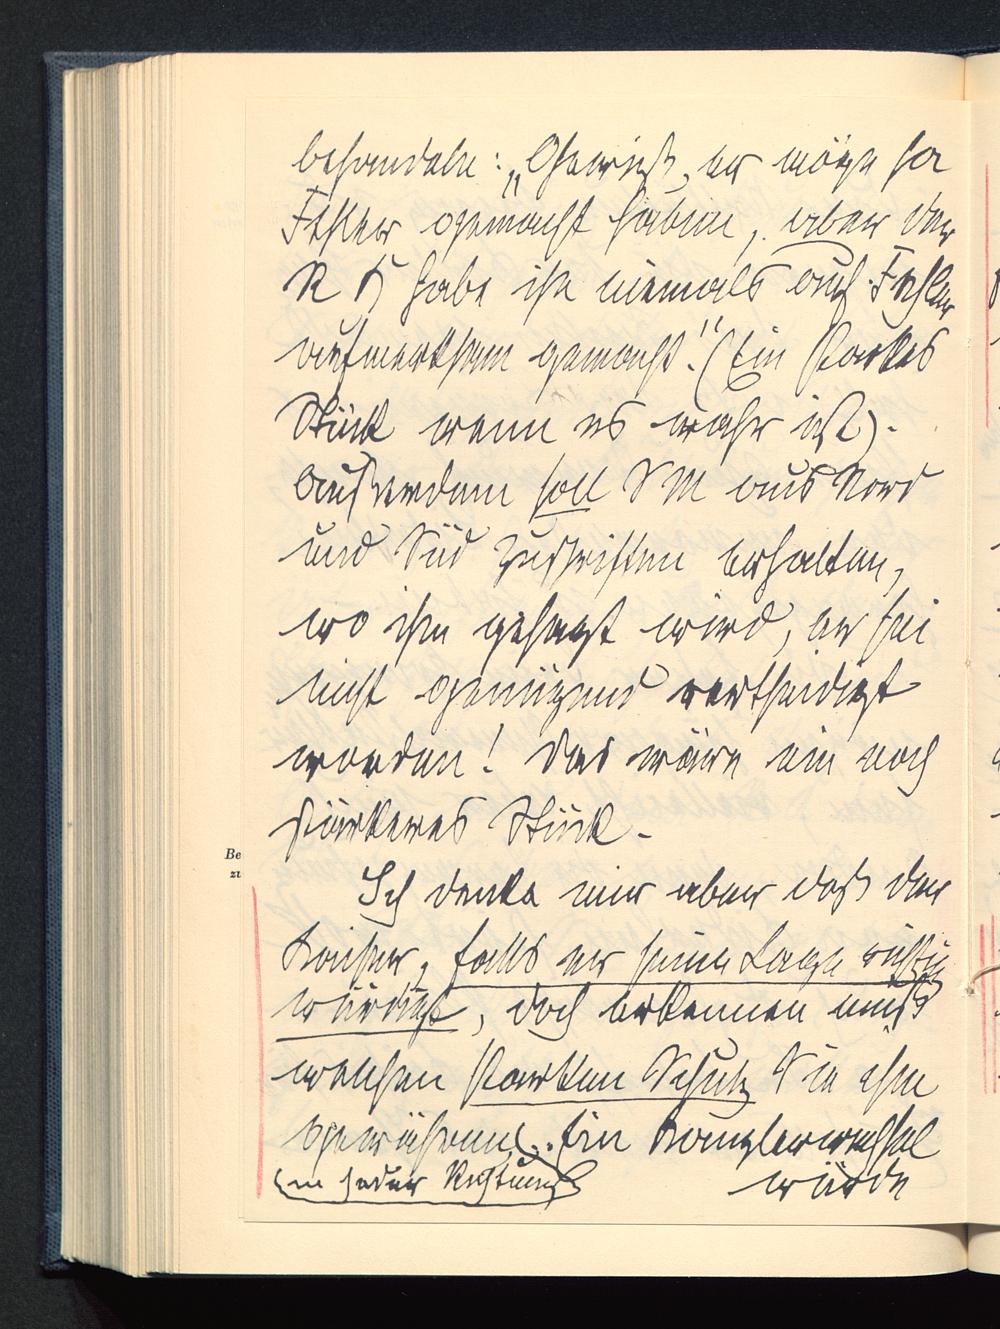 behandeln: „Gewiß, er möge ja
Fehler gemacht haben, aber der
R K habe ihn niemals auf Fehler
aufmerksam gemacht!" (Ein starkes
Stück wenn es wahr ist).
Außerdem soll S M aus Nord
und Süd Zuschriften erhalten,
wo ihm gesagt wird, er sei
nicht genügend vertheidigt
worden! Das wäre ein noch
stärkeres Stück.
Be
zu
Ich denke mir aber daß der
Kaiser, falls er seine Lage richtig
würdigt, doch erkennen muß
welchen starken Schutz Sie ihm
gewähren. Ein Kanzlerwechsel
(in jeder Richtung) würde